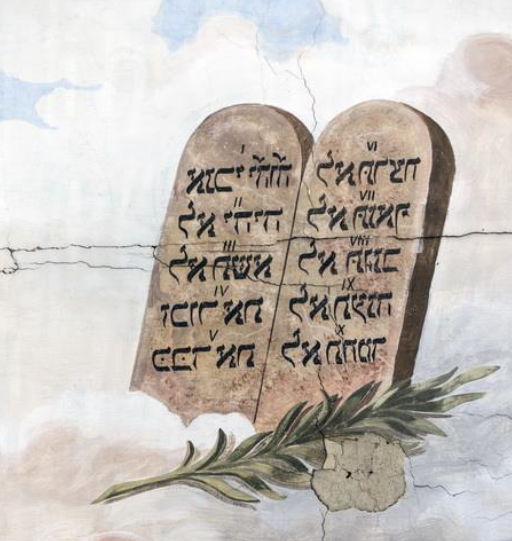 I
אנכי יהוה
II
לא יהיה
III
לא תשא
IV
זכור את
V
כבד את
VI
לא תרצח
VII
לא תנאף
VIII
לא תגנב
IX
לא תענה
X
לא תחמד